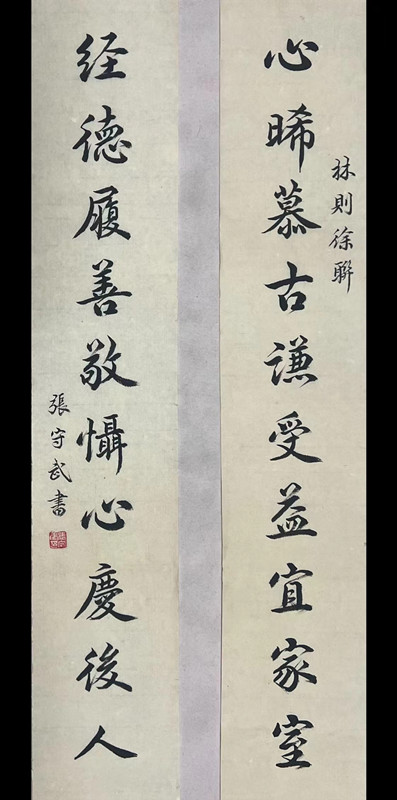 心晞慕古謙受益宜家室
林則徐聯
经德履善敬懾心慶後人
張守武書